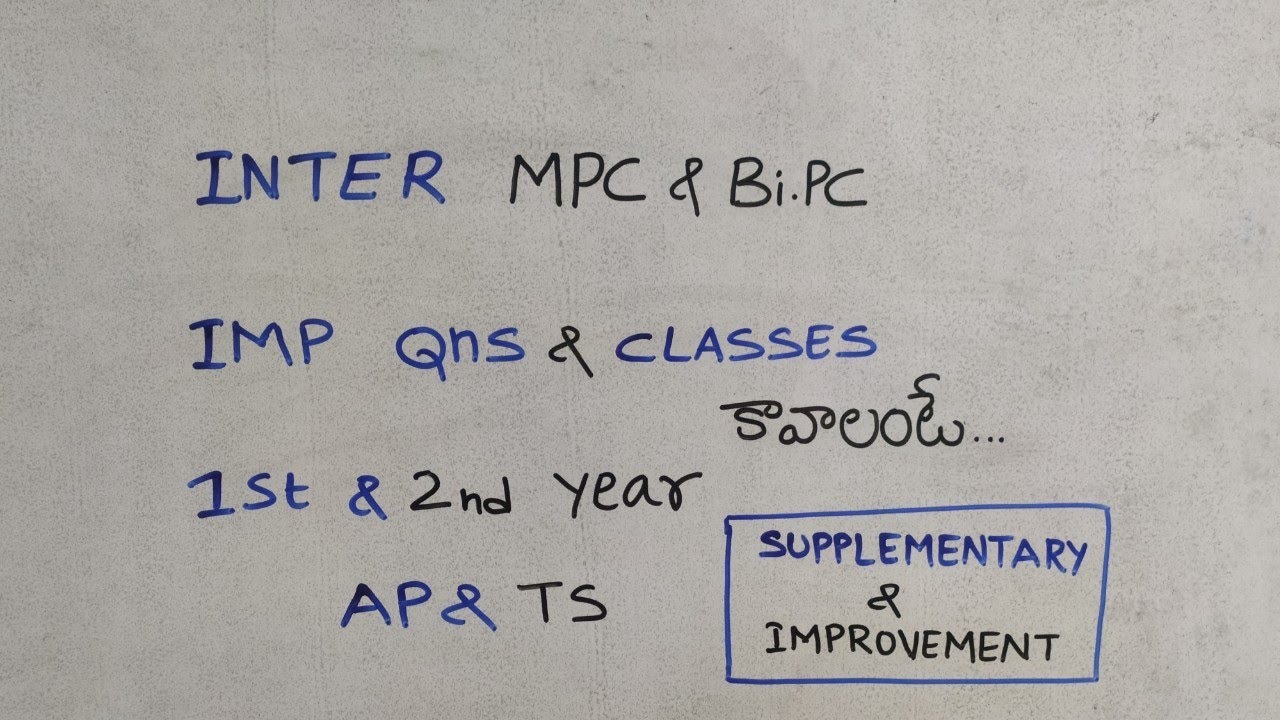 INTER MPC & Bi.PC
IMP Qns & CLASSES
కావాలంటే...
1st & 2nd year
AP & TS
SUPPLEMENTARY
&
IMPROVEMENT